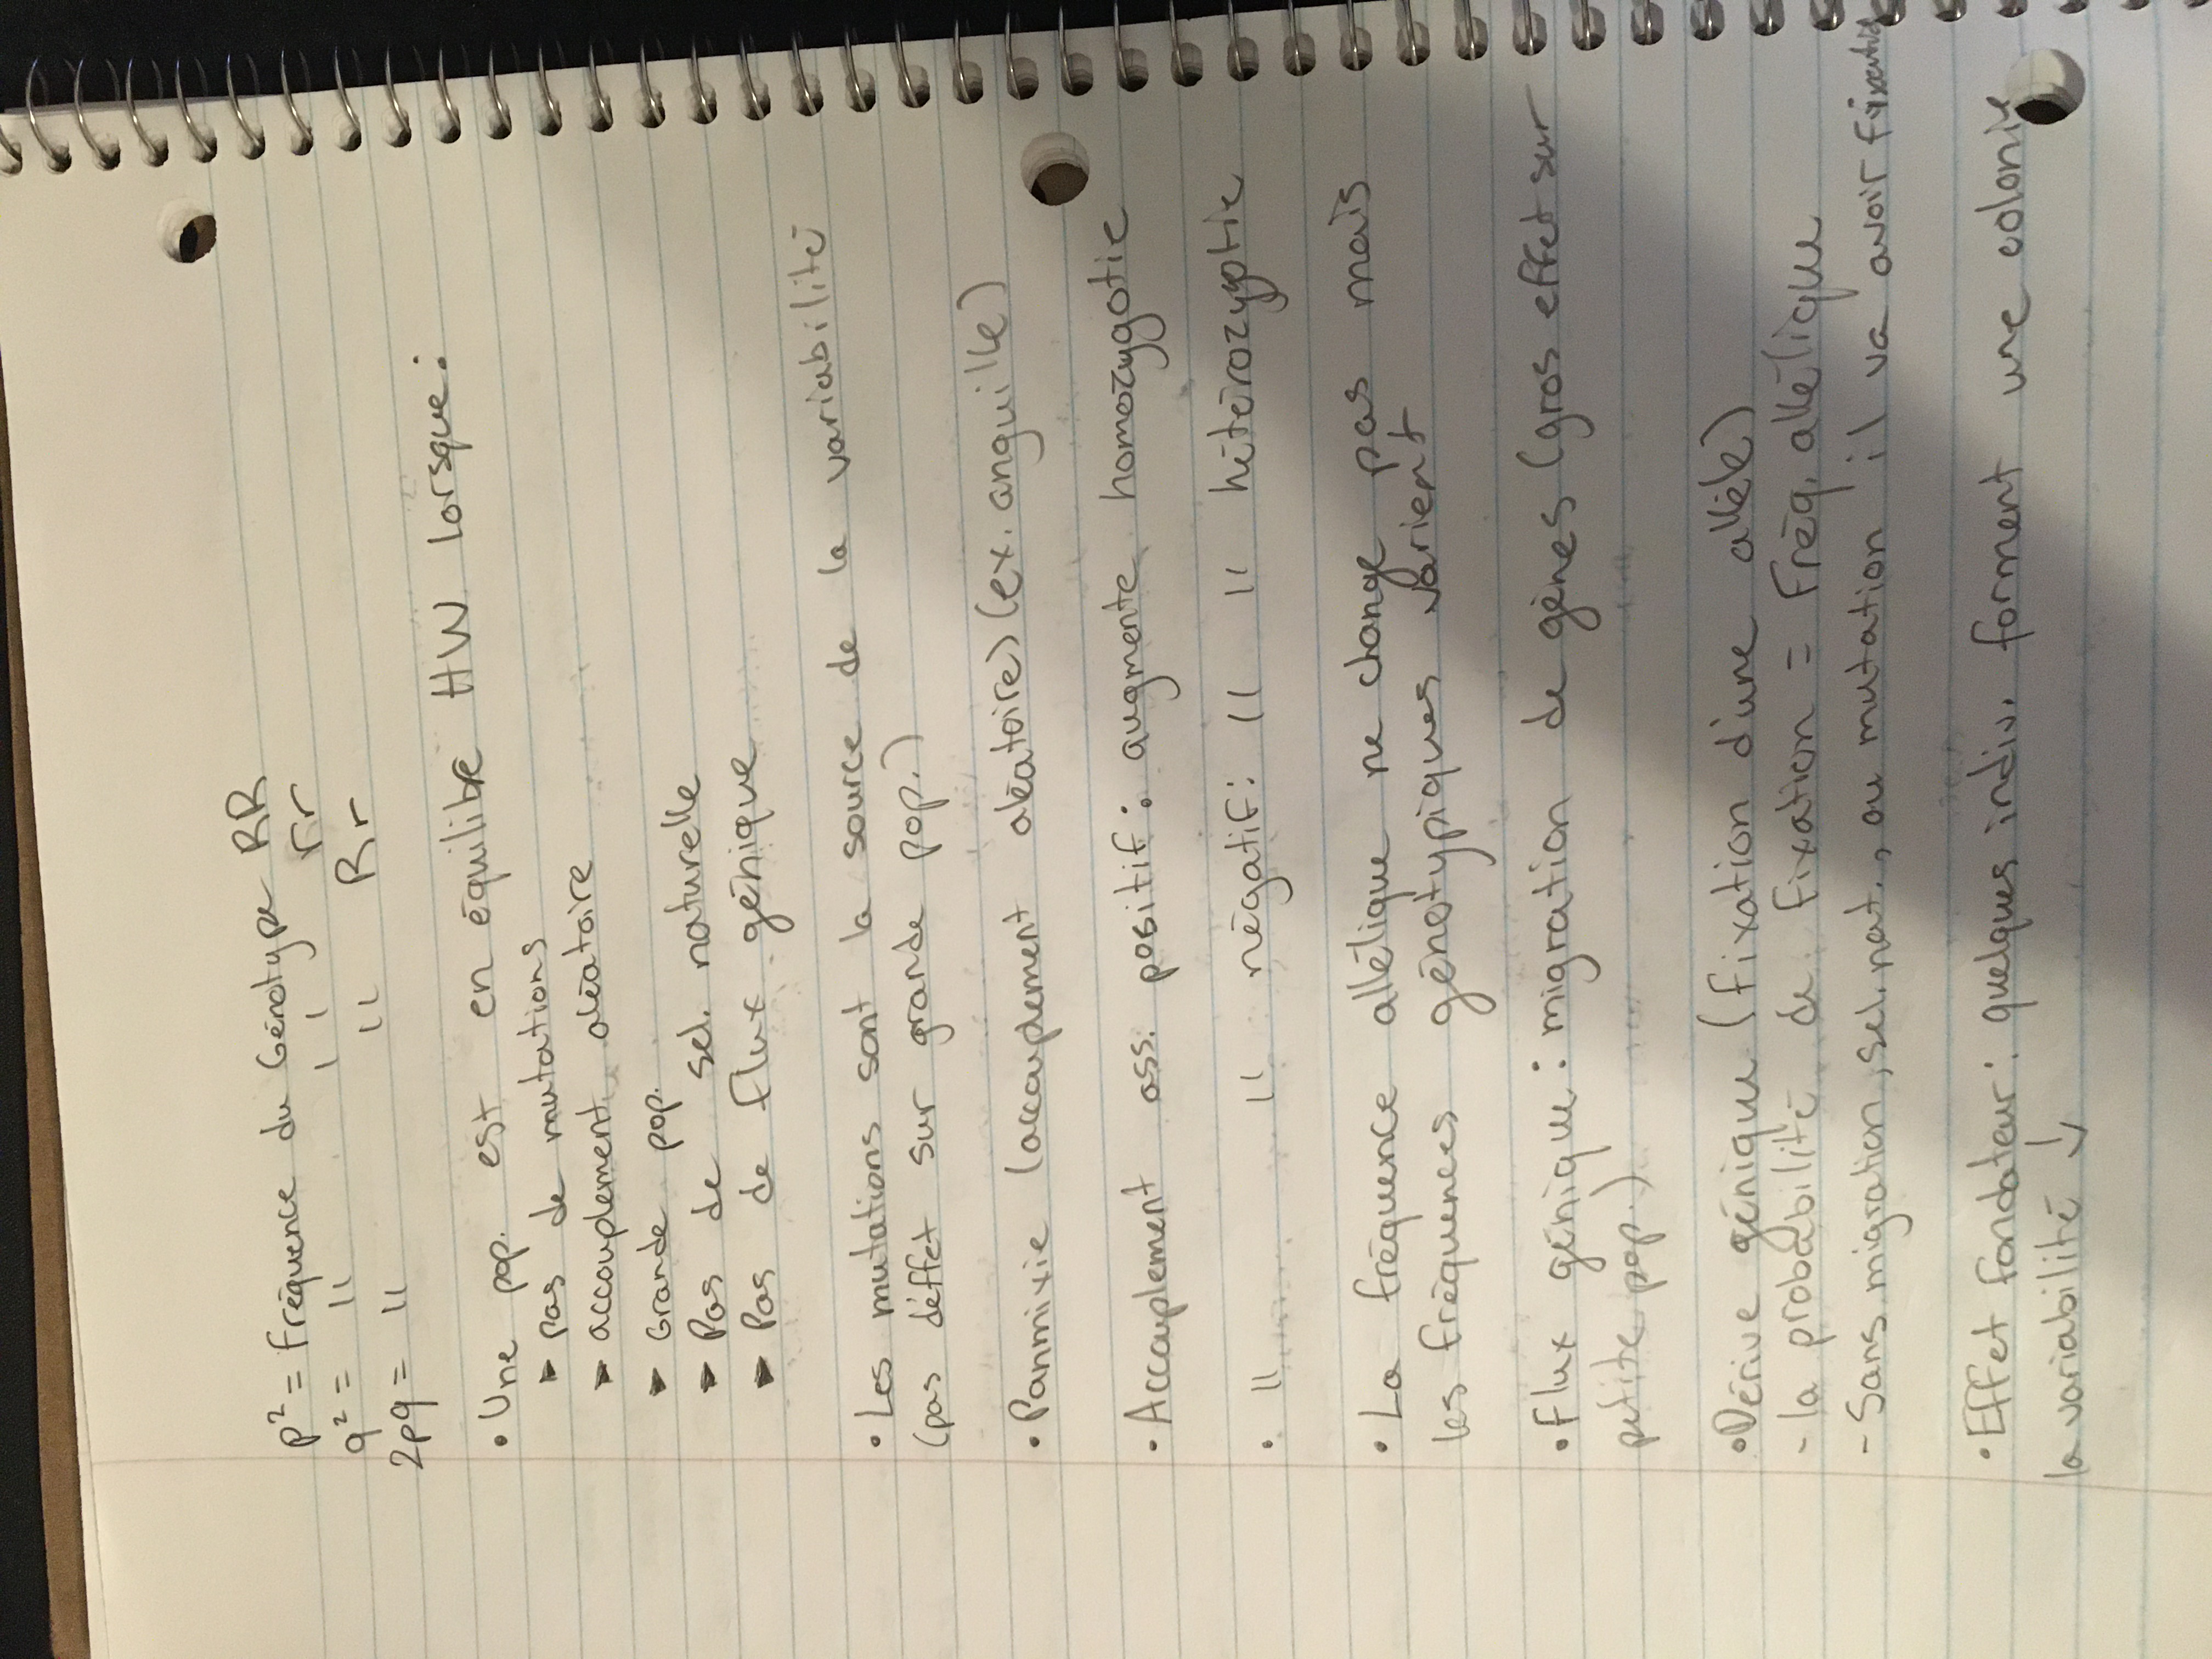 p² = Fréquence du Génotype RR
q² = " " rr
2pq = " " Rr
• Une pop. est en équilibre HW lorsque:
► Pas de mutations
► accouplement aléatoire
► Grande pop.
► Pas de sel. naturelle
► Pas de flux génique
• Les mutations sont la source de la variabilité
(pas d'effet sur grande pop.)
• Panmixie (accouplement aléatoire) (ex. anguille)
• Accouplement ass. positif: augmente homozygotie
• " " négatif: " " hétérozygotie
• La fréquence allélique ne change pas mais
les fréquences génotypiques varient
• Flux génique: migration de gènes (gros effet sur
petite pop.)
• Dérive génique (fixation d'une allèle)
- la probabilité de fixation = Fréq. allélique
- Sans migration, sel. nat., ou mutation il va avoir fixation
• Effet fondateur: quelques indiv. forment une colonie
la variabilité ↓